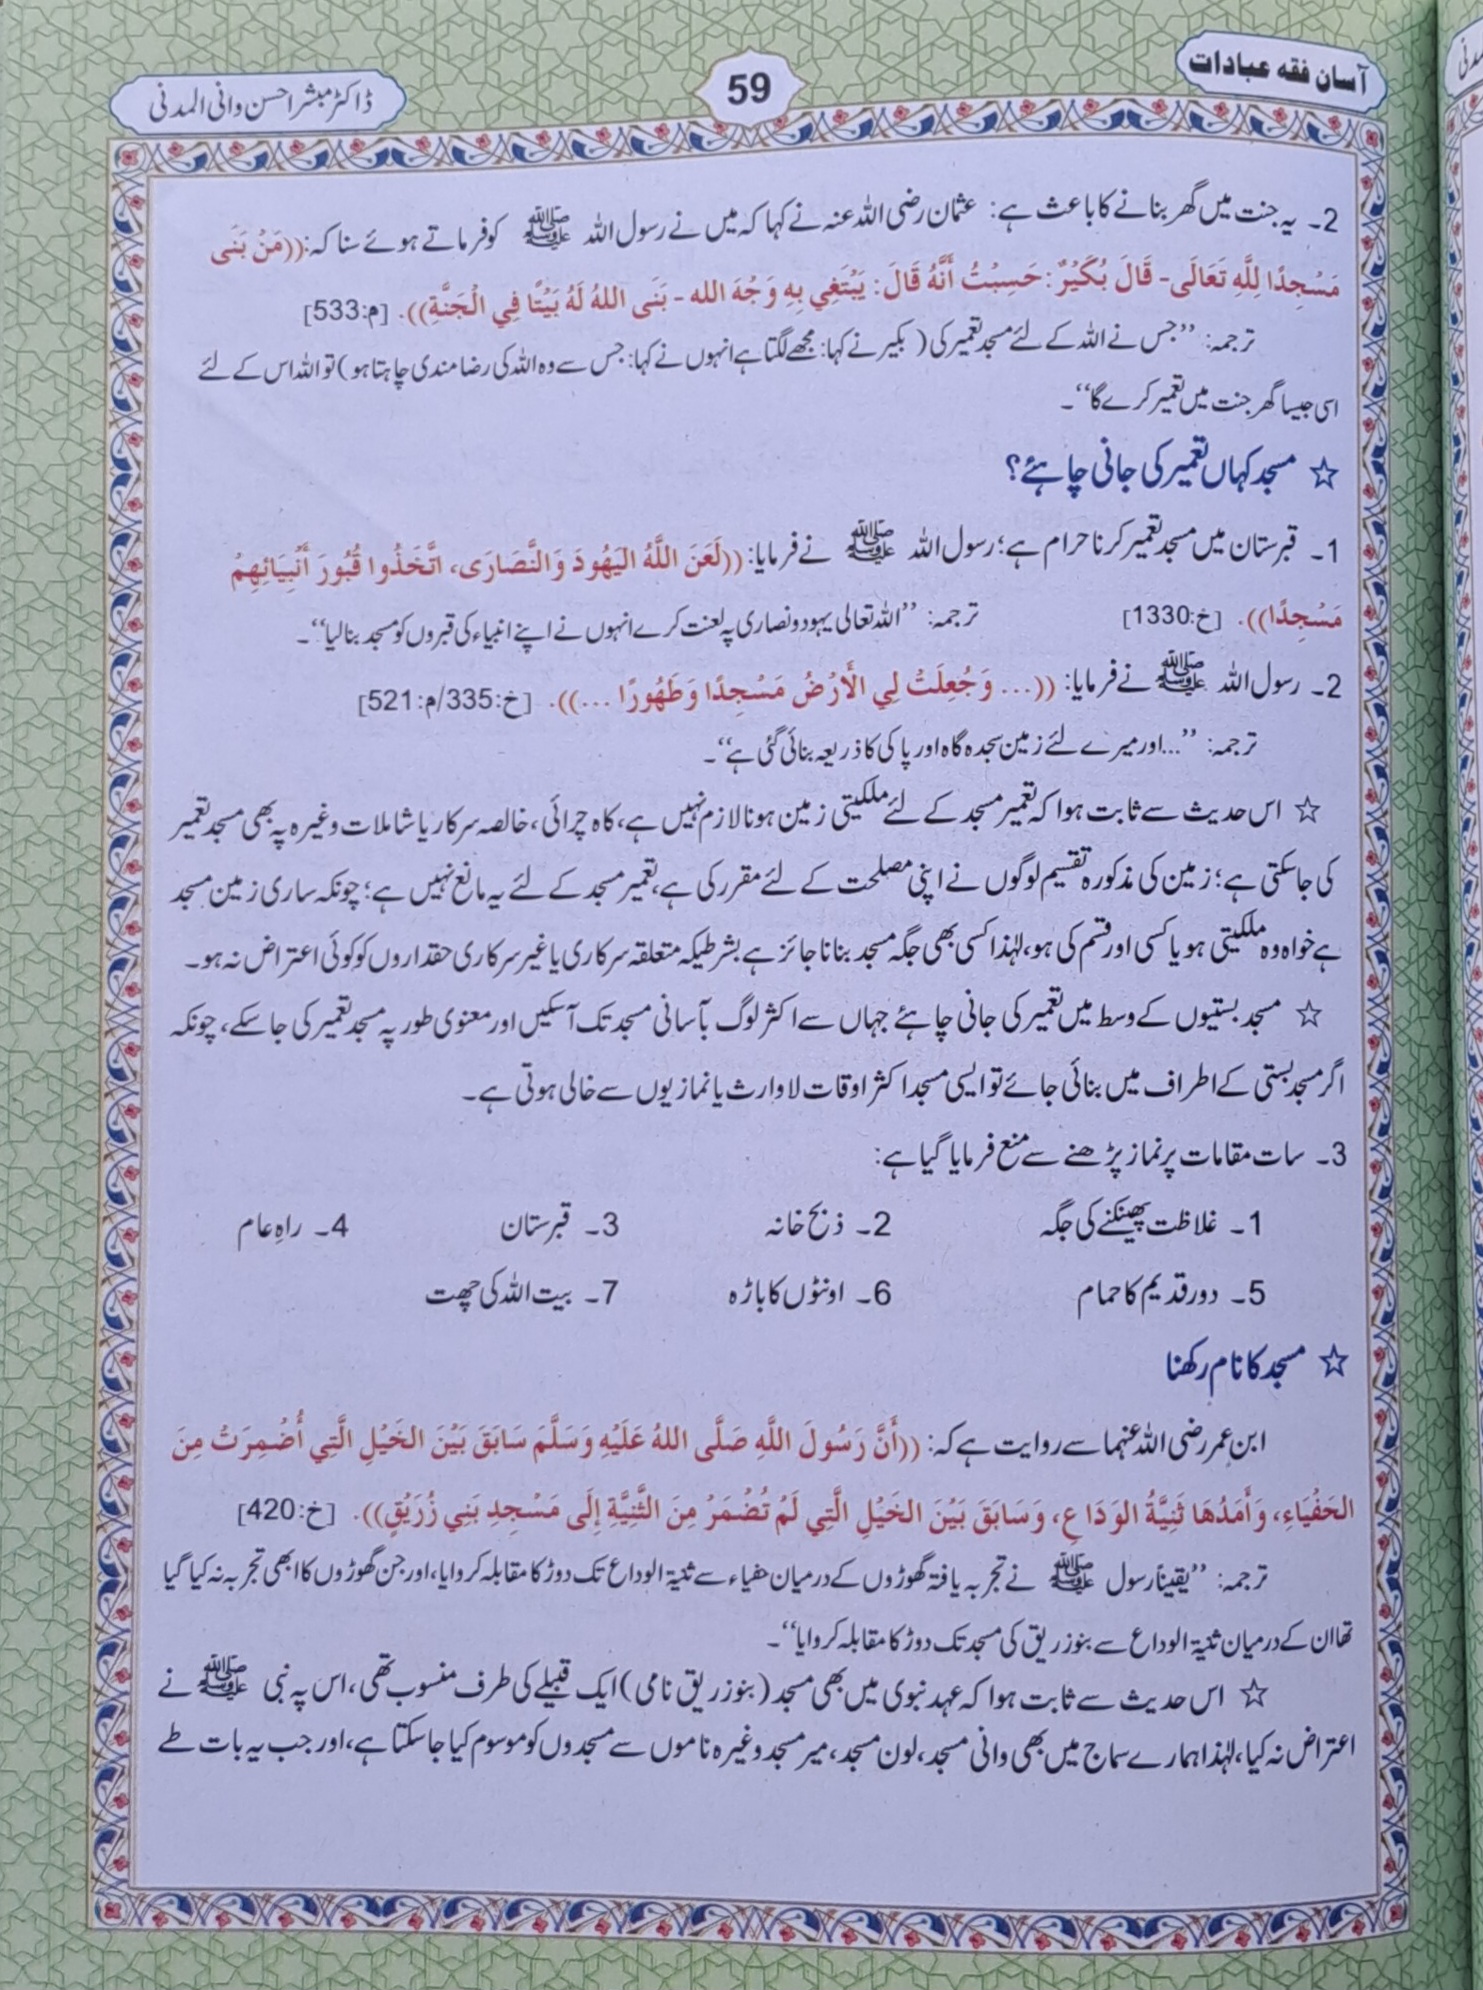 آسان فقہ عبادات
59
ڈاکٹر مبشر احسن وانی المدنی
2۔ یہ جنت میں گھر بنانے کا باعث ہے: عثمان رضی اللہ عنہ نے کہا کہ میں نے رسول اللہ ﷺ کو فرماتے ہوئے سنا کہ: ((مَنْ بَنَى
مَسْجِدًا لِلَّهِ تَعَالَى- قَالَ بُكَيْرٌ: حَسِبْتُ أَنَّهُ قَالَ: يَبْتَغِي بِهِ وَجْهَ الله - بَنَى اللهُ لَهُ بَيْتًا فِي الْجَنَّةِ)). [م:533]
ترجمہ: ’’جس نے اللہ کے لئے مسجد تعمیر کی (بکیر نے کہا: مجھے لگتا ہے انہوں نے کہا: جس سے وہ اللہ کی رضامندی چاہتا ہو) تو اللہ اس کے لئے
اسی جیسا گھر جنت میں تعمیر کرے گا‘‘۔
☆ مسجد کہاں تعمیر کی جانی چاہئے؟
1۔ قبرستان میں مسجد تعمیر کرنا حرام ہے؛ رسول اللہ ﷺ نے فرمایا: ((لَعَنَ اللَّهُ اليَهُودَ وَالنَّصَارَى، اتَّخَذُوا قُبُورَ أَنْبِيَائِهِمْ
مَسْجِدًا)). [خ:1330] ترجمہ: ’’اللہ تعالی یہود و نصاری پہ لعنت کرے انہوں نے اپنے انبیاء کی قبروں کو مسجد بنالیا‘‘۔
2۔ رسول اللہ ﷺ نے فرمایا: ((... وَجُعِلَتْ لِي الأَرْضُ مَسْجِدًا وَطَهُورًا ...)). [خ:335/م:521]
ترجمہ: ’’...اور میرے لئے زمین سجدہ گاہ اور پاکی کا ذریعہ بنائی گئی ہے‘‘۔
☆ اس حدیث سے ثابت ہوا کہ تعمیر مسجد کے لئے ملکیتی زمین ہونا لازم نہیں ہے، کاہ چرائی، خالصہ سرکار یا شاملات وغیرہ پہ بھی مسجد تعمیر
کی جاسکتی ہے؛ زمین کی مذکورہ تقسیم لوگوں نے اپنی مصلحت کے لئے مقرر کی ہے، تعمیر مسجد کے لئے یہ مانع نہیں ہے؛ چونکہ ساری زمین مسجد
ہے خواہ وہ ملکیتی ہو یا کسی اور قسم کی ہو، لہٰذا کسی بھی جگہ مسجد بنانا جائز ہے بشرطیکہ متعلقہ سرکاری یا غیر سرکاری حقداروں کو کوئی اعتراض نہ ہو۔
☆ مسجد بستیوں کے وسط میں تعمیر کی جانی چاہئے جہاں سے اکثر لوگ بآسانی مسجد تک آسکیں اور معنوی طور پہ مسجد تعمیر کی جاسکے، چونکہ
اگر مسجد بستی کے اطراف میں بنائی جائے تو ایسی مسجد اکثر اوقات لاوارث یا نمازیوں سے خالی ہوتی ہے۔
3۔ سات مقامات پر نماز پڑھنے سے منع فرمایا گیا ہے:
1۔ غلاظت پھینکنے کی جگہ 2۔ ذبح خانہ 3۔ قبرستان 4۔ راہِ عام
5۔ دور قدیم کا حمام 6۔ اونٹوں کا باڑہ 7۔ بیت اللہ کی چھت
☆ مسجد کا نام رکھنا
ابن عمر رضی اللہ عنہما سے روایت ہے کہ: ((أَنَّ رَسُولَ اللَّهِ صَلَّى اللهُ عَلَيْهِ وَسَلَّمَ سَابَقَ بَيْنَ الخَيْلِ الَّتِي أُضْمِرَتْ مِنَ
الحَفْيَاءِ، وَأَمَدُهَا ثَنِيَّةُ الوَدَاعِ، وَسَابَقَ بَيْنَ الخَيْلِ الَّتِي لَمْ تُضْمَرْ مِنَ الثَّنِيَّةِ إِلَى مَسْجِدِ بَنِي زُرَيْقٍ)). [خ:420]
ترجمہ: ’’یقیناً رسول ﷺ نے تجربہ یافتہ گھوڑوں کے درمیان حفیاء سے ثنیۃ الوداع تک دوڑ کا مقابلہ کروایا، اور جن گھوڑوں کا ابھی تجربہ نہ کیا گیا
تھا ان کے درمیان ثنیۃ الوداع سے بنو زریق کی مسجد تک دوڑ کا مقابلہ کروایا‘‘۔
☆ اس حدیث سے ثابت ہوا کہ عہد نبوی میں بھی مسجد (بنو زریق نامی) ایک قبیلے کی طرف منسوب تھی، اس پہ نبی ﷺ نے
اعتراض نہ کیا، لہٰذا ہمارے سماج میں بھی وانی مسجد، لون مسجد، میر مسجد وغیرہ ناموں سے مسجدوں کو موسوم کیا جاسکتا ہے، اور جب یہ بات طے